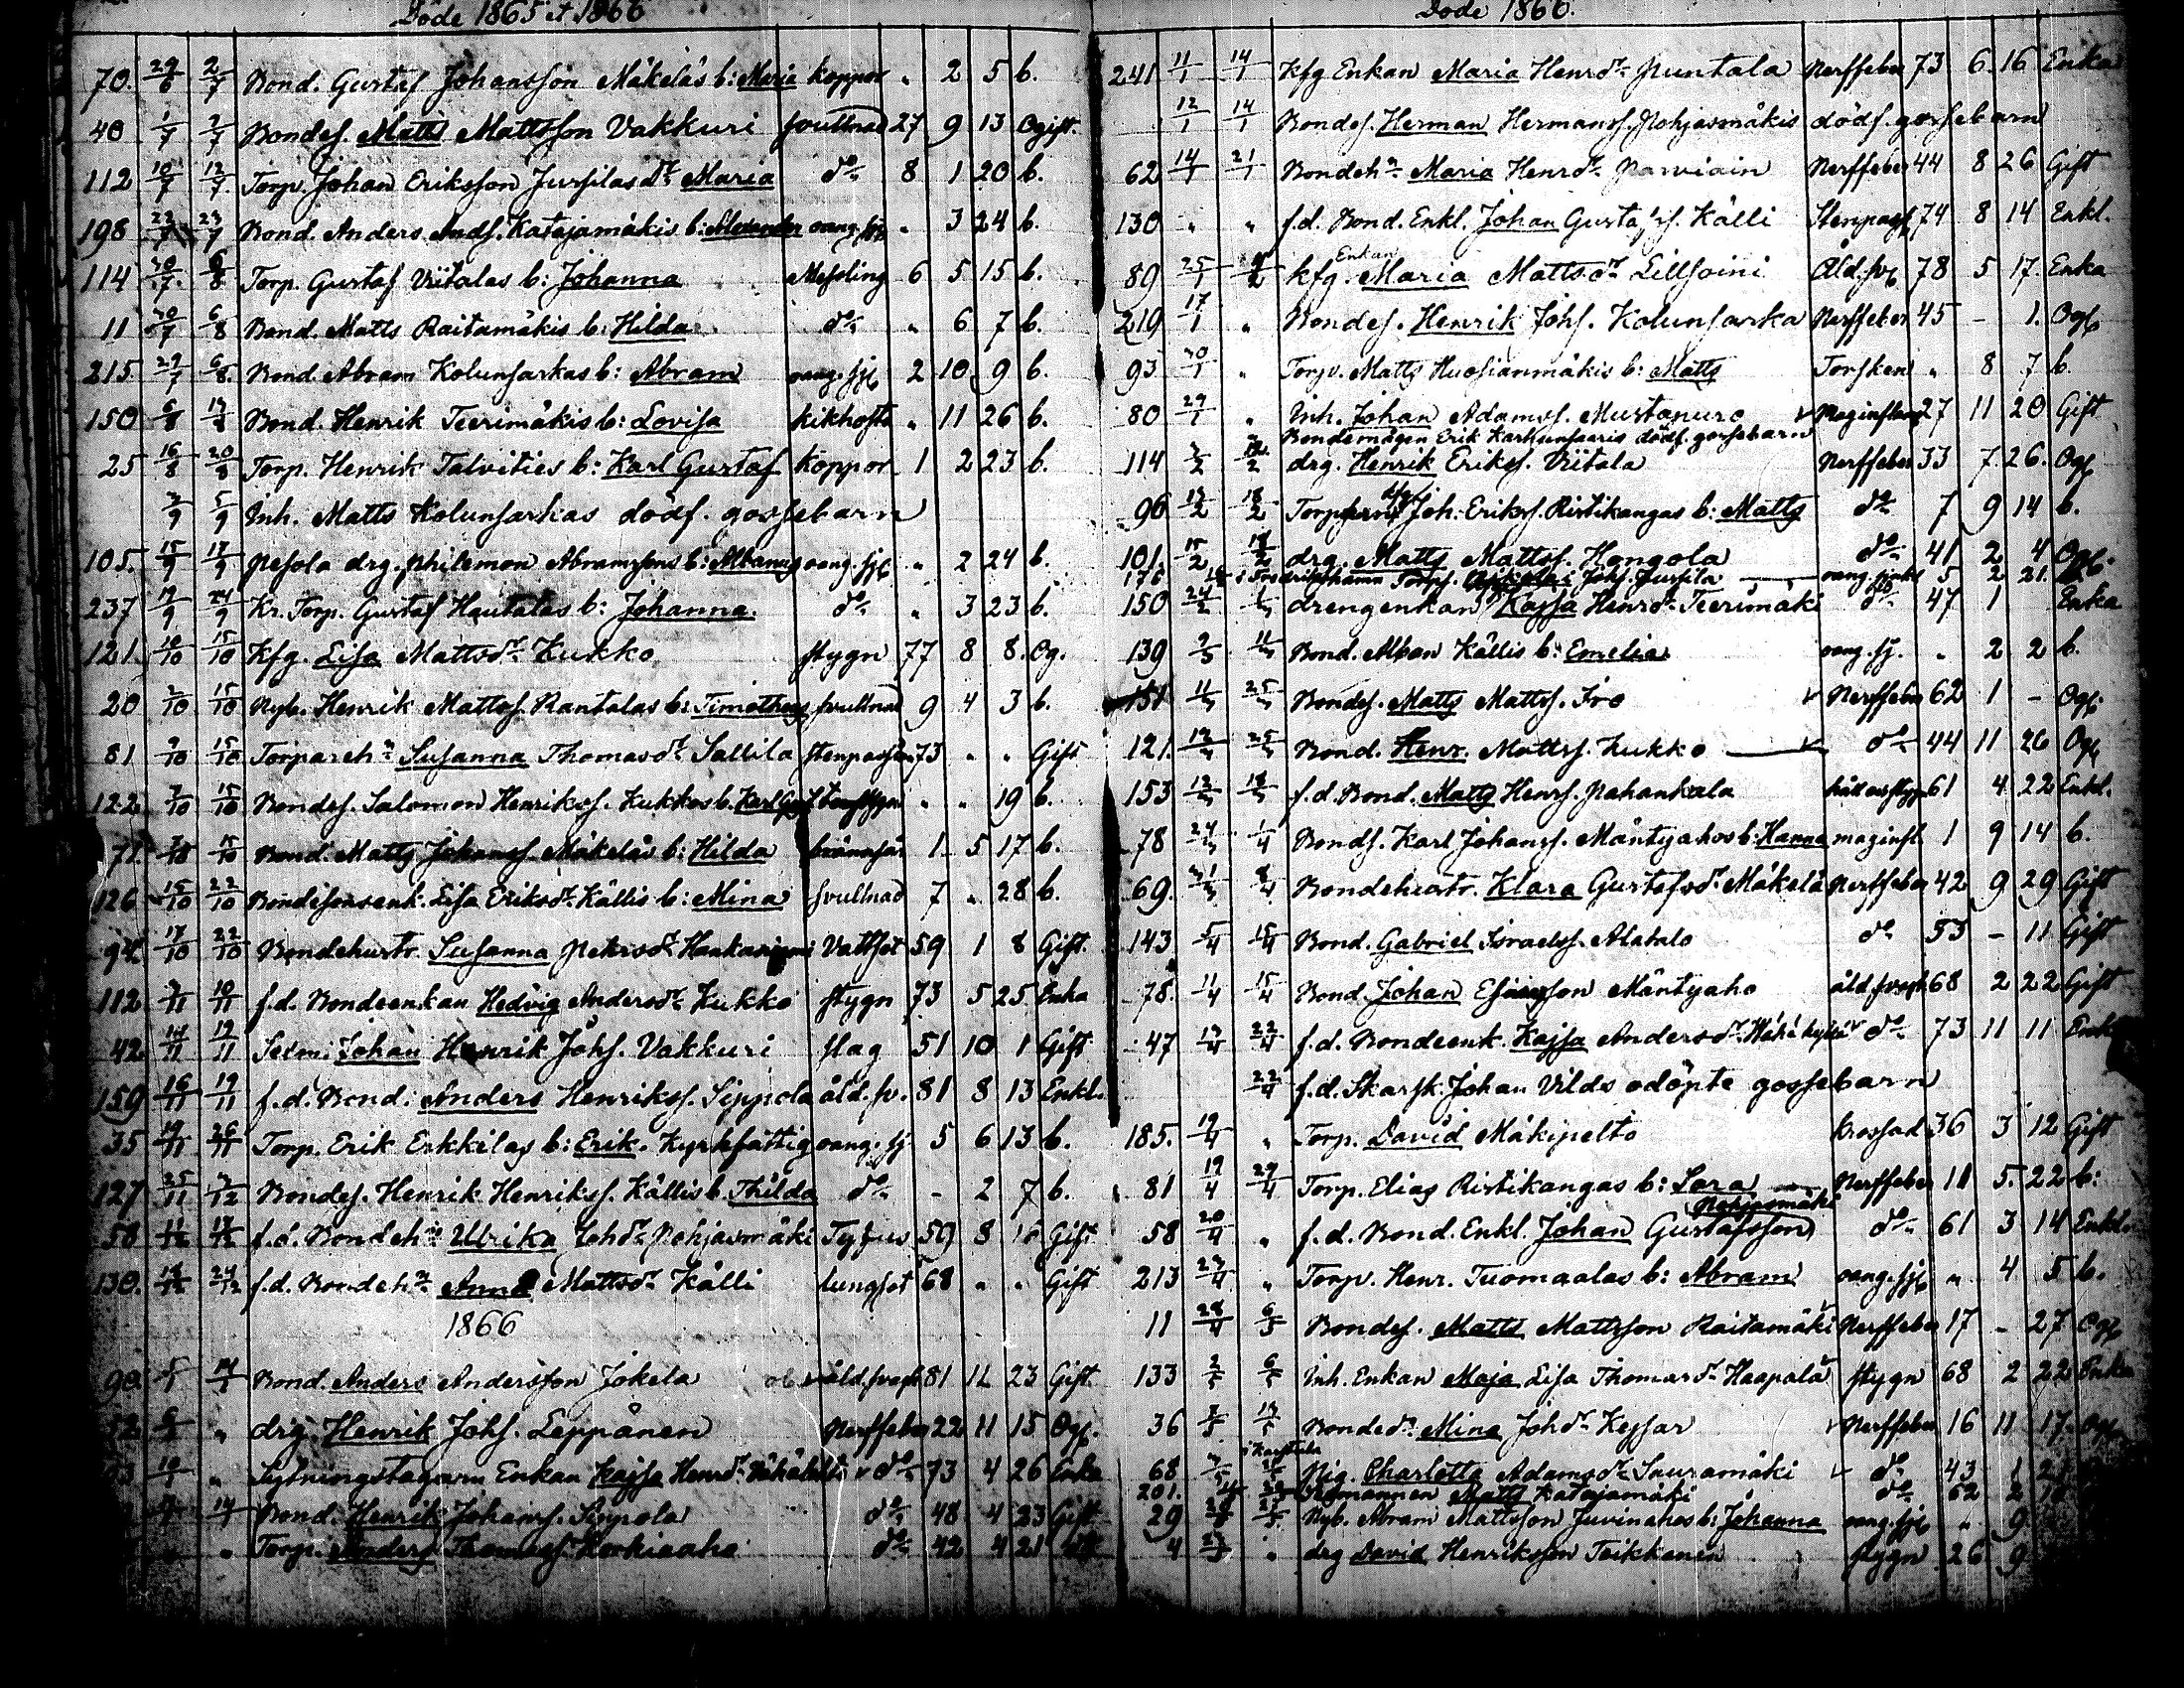 Döde 1865 et 1866
70. 29/6 2/7 Bond. Gustaf Johansson Mäkeläs b: Maria koppor " 2 5 b.
40 1/7 2/7 Bondes. Matts Mattsson Vakkuri svullnad 27 9 13 Ogift.
112 10/7 12/7 Torp. Johan Eriksson Jussilas dr Maria do 8 1 20 b.
198 22/7 23/7 Bond. Anders Ands. Katajamäkis b: Alexander oang. sjd " 3 24 b.
114 30/7 6/8 Torp. Gustaf Viitalas b: Johanna Messling 6 5 15 b.
11 30/7 6/8 Bond. Matts Raitamäkis b: Hilda do " 6 7 b.
215 29/7 6/8 Bond. Abram Kolunsarkas b: Abram oang. sjd 2 10 9 b.
150 6/8 Bond. Henrik Teerimäkis b: Lovisa kikhosta " 11 26 b.
25 16/8 20/8 Torp. Henrik Talvities b: Karl Gustaf koppor 1 2 23 b.
2/9 5/9 Inh. Matts Kolunsarkas dödf. gossebarn
105. 15/9 17/9 Pesola drg. Philemon Abramssons b: Albanus oang. sjd " 2 24 b.
237 17/9 24/9 Kr. Torp. Gustaf Hautalas b: Johanna. do " 3 23 b.
121. 10/10 15/10 Kfg. Lisa Mattsdr Kukko stygn 77 8 8. Og.
20 15/10 Nyb. Henrik Mattss. Rantalas b: Timotheus svullnad 9 4 3 b.
81 9/10 15/10 Torpareh. Susanna Thomasdr Sallila stenpassion 73 " " Gift
122 7/10 15/10 Bondes. Salomon Henrikss. Kukkos b. Karl Gust " " 19 b.
71. 15/10 Bond. Matts Johanss. Mäkeläs b: Hilda brännsår 1 5 17 b.
126 15/10 22/10 Bondesonsenk. Lisa Eriksdr Källis b: Mina svullnad 7 " 28 b.
94. 17/10 22/10 Bondehustr. Susanna Petersdr Vattsot 59 1 8 Gift.
112 10/11 f.d. Bondeenkan Hedvig Andersdr Kukko stygn 73 5 25 Enka
42 14/11 19/11 Sexm. Johan Henrik Johs. Vakkuri slag 51 10 1 Gift
159 16/11 19/11 f.d. Bond. Anders Henrikss. Seppola åld. sv. 81 8 13 Enkl.
35 19/11 26/11 Torp. Erik Erkkilas b: Erik. Kyrkfattig oang. sj 5 6 13 b.
127 25/11 3/12 Bondes. Henrik Henrikss. Källis b. Thilda do - 2 7 b.
58 f.d. Bondeh. Ulrika Johdr Pohjasmäki Tyfus 59 8 16 Gift
130. 24/12 f.d. Bondeh. Anna Mattsdr Källi lungsot 68 " " Gift
1866
90. 5/1 14/1 Bond. Anders Andersson Jokela åld. svagh 81 11 23 Gift.
52 6/1 " drg. Henrik Johs. Leppänen Nerffeber 22 11 15 Ogf.
10/1 " Sytningstagarin Enkan Kajsa Henrdr do 73 4 26 Enka
14 Bond. Henrik Johanss. Seppola do 48 4 23 Gift
" Torp. Anders Thomass. Honkiaaho do 42 4 21
Döde 1866.
241 11/1 14/1 Kfg Enkan Maria Henrdr Puntala Nerffeber 73 6 16 Enka
12/1 14/1 Bondes. Herman Hermanss. Pohjasmäkis dödf. gossebarn
62 14/1 21/1 Bondeh. Maria Henrdr Parviain Nerffeber 44 8 26 Gift
130 " " f.d. Bond. Enkl. Johan Gustafss. Källi Stenpass 74 8 14 Enkl.
89 25/1 4/2 kfg. Enkan Maria Mattsdr Leissoini Åld. svg 78 5 17. Enka
219 17/1 " Bondes. Henrik Johs. Kolunsarka Nerffeber 45 - 1. Ogf
93 30/1 " Torp. Matts Huosianmäkis b: Matts Torsken " 8 7 b.
80 29/1 " Inh. Johan Adamss. Mustapuro Maginflam 27 11 20 Gift
Bondemågen Erik Karhunsaaris dödf. gossebarn
114 3/2 drg. Henrik Erikss. Viitala Nerffeber 33 7. 26. Ogf
96 13/2 18/2 Joh. Erikss. Ristikangas b: Matts do 7 9 14 b.
101. 15/2 18/2 drg. Matts Mattss. Hongola do 41 2 4 Ogf.
176 i Fredrikshamn Torps. Johs. Jussila oang. sjd 5 2 21.
150 24/2 drengenkan Kajsa Henrdr Teerimäki do 47 1 Enka
139 2/3 11/3 Bond. Alban Källis b: Emelia oang. sj. " 2 2 b.
151 11/3 25/3 Bondes. Matts Mattss. Iro Nerffeber 62 1 - Ogf.
121. 25/3 Bond. Henr. Mattss. Kukko do 44 11 26 Ogf
153 12/3 18/3 f.d. Bond. Matts Henrs. Pahankala håll och stygn 61 4 22 Enkl.
78 24/3 1/4 Bonds. Karl Johanss. Mäntyahos b: Hanna maginfl. 1 9 14 b.
69. 31/3 8/4 Bondehustr. Klara Gustafsdr Mäkelä Nerffeber 42 9 29 Gift
143 5/4 15/4 Bond. Gabriel Israelss. Alatalo do 53 - 11 Gift
78. 11/4 15/4 Bond. Johan Esaiasson Mäntyaho åld. svagh 68 2 22 Gift
47 22/4 f.d. Bondeenk. Kajsa Andersdr do 73 11 11 Enka
22/4 f.d. Skarsk. Johan Vilds odöpte gossebarn
185. 19/4 " Torp. David Mäkipelto krossad 36 3 12 Gift
81 19/4 29/4 Torp. Elias Ristikangas b: Sara Nerffeber 11 5. 22 b:
58 20/4 " f.d. Bond. Enkl. Johan Gustafsson Pohjasmäki do 61 3 14 Enkl.
213 23/4 " Torp. Henr. Tuomaalas b: Abram oang. sjd " 4 5 b.
11 28/4 6/5 Bondes. Matts Mattsson Raitamäki Nerffeber 17 - 27 Ogf
133 2/5 6/5 Inh. Enkan Maja Lisa Thomasdr Haapala stygn 68 2 22 Enka
36 7/5 13/5 Bondedr Mina Johdr Keysar Nerffeber 16 11 17.
68 Pig. Charlotta Adamsdr Sauramäki do 43 1
201. Matts Katajamäki do 62 2
29 Nyb. Abram Mattsson Juvinahos b: Johanna oang. sjd " 9
4 " drg David Henriksson Teikkanen stygn 26 9